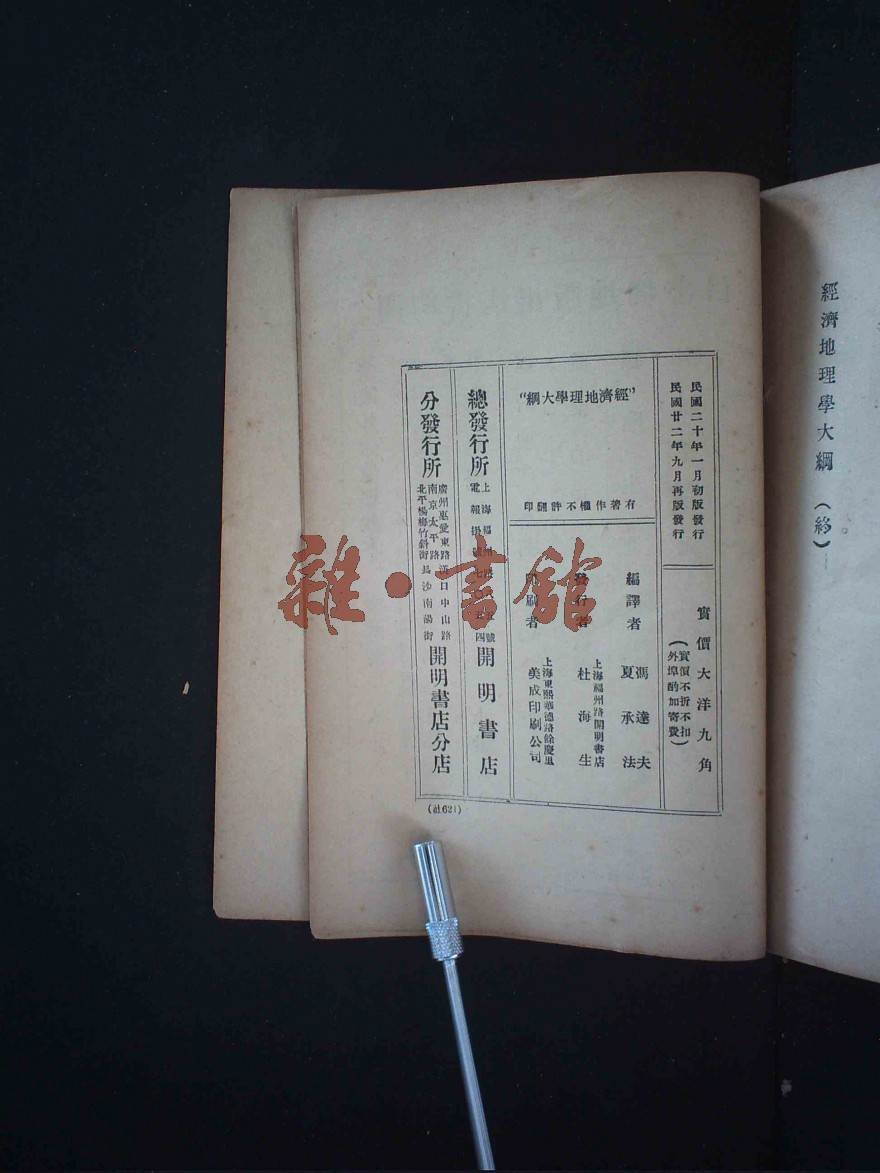 經濟地理學大綱（終）
民國二十年一月初版發行
民國廿二年九月再版發行
實價大洋九角
（實價不折不扣
外埠酌加寄費）
"經濟地理學大綱"
有著作權不許翻印
編譯者
馮達夫
夏承法
發行者
上海福州路開明書店
杜海生
印刷者
上海東熙華德路餘慶里
美成印刷公司
總發行所
上海福州路
電報掛號七〇五四
開明書店
分發行所
廣州惠愛東路
漢口中山路
南京太平路
長沙南陽街
北平楊梅竹斜街
開明書店分店
(社621)
雜·書館